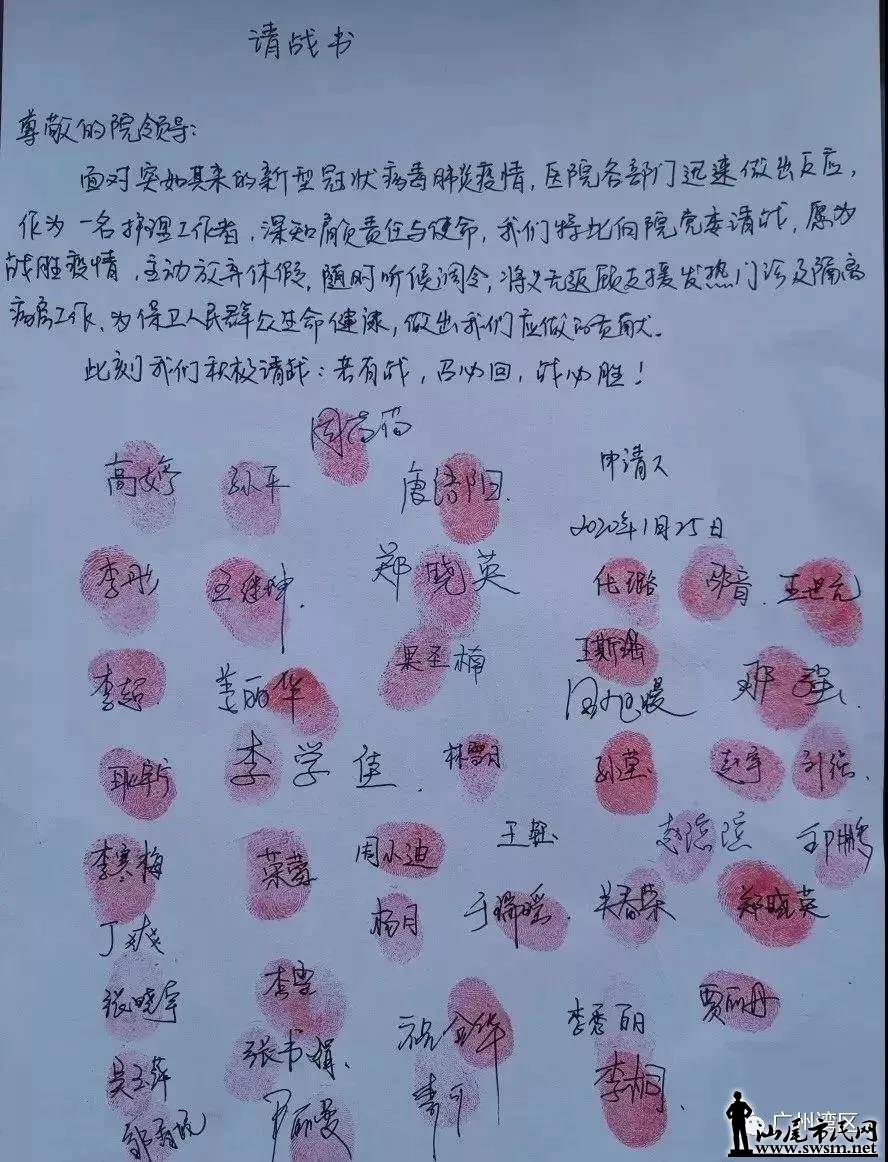 请战书
尊敬的院领导:
面对突如其来的新型冠状病毒肺炎疫情,医院各部门迅速做出反应,
作为一名护理工作者,深知肩负责任与使命,我们特此向院党委请战,愿为
战胜疫情,主动放弃休假,随时听候调令,将义无返顾支援发热门诊及隔离
病房工作、为保卫人民群众生命健康,做出我们应做的贡献。
此刻我们积极请战:若有战,召必回,战必胜!
高婷 孙平 申请人
2020年1月25日
李彤 郑晓英 王世元
李超 姜丽华 王斯瑶
李学佳 林雪月 孙莹 赵宇
李寒梅 周小迪 王钰 赵滨滨 邱鹏
丁爽 杨月 于瑞瑶 关春荣 郑晓英
张晓宇 李雪 李秀丽 贾丽丹
吴玉萍 张书娟 李桐
广州湾区
汕尾市民网
www.swsm.net